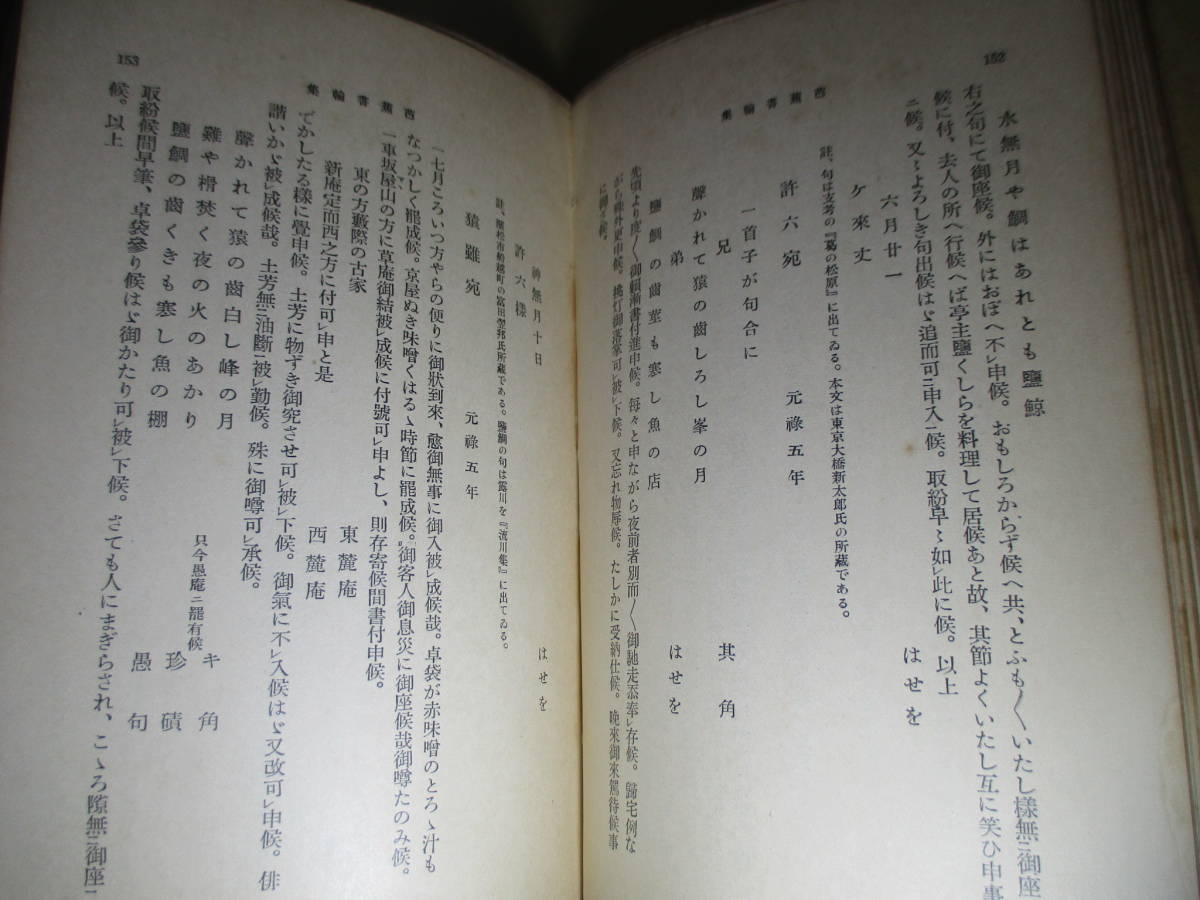 152
芭蕉書翰集
水無月や鯛はあれとも鹽鯨
右之句にて御座候。外にはおぼへ不レ申候。おもしろからず候へ共、とふも〳〵いたし樣無ニ御座
候に付、去人の所へ行候へば亭主鹽くしらを料理して居候あと故、其節よくいたし互に笑ひ申事
ニ候。又〻よろしき句出候はゞ追而可ニ申入一候。取紛早〻如レ此に候。以上
六月廿一
はせを
ケ來丈
註、句は支考の『葛の松原』に出てゐる。本文は東京大橋新太郎氏の所藏である。
許六宛
元祿五年
一首子が句合に
兄
其角
聲かれて猿の齒しろし峯の月
弟
はせを
鹽鯛の齒莖も寒し魚の店
先頃より度〳〵御頼漸書付進申候。每々と申ながら夜前者別而〳〵御馳走忝奉レ存候。歸宅例な
がら殊外更申候。挑灯御落掌可レ被レ下候。又忘れ物辱候。たしかに受納仕候。晩來御來駕待候事
に御ざ候。
153
芭蕉書翰集
神無月十日
はせを
許六樣
註、濱松市船越町の富田空邦氏所藏である。鹽鯛の句は露川を『流川集』に出てゐる。
猿雖宛
元祿五年
一七月ころいつ方やらの便りに御狀到來、愈御無事に御入被レ成候哉。卓袋が赤味噌のとろゝ汁も
なつかしく罷成候。京屋ぬき味噌くはるゝ時節に罷成候。御客人御息災に御座候哉御噂たのみ候。
一車坂屋山の方に草庵御結被レ成候に付號可レ申よし、則存寄候間書付申候。
東の方藪際の古家
東麓庵
新庵定而西之方に付可レ申と是
西麓庵
でかしたる樣に覺申候。土芳に物ずき御究させ可レ被レ下候。御氣に不レ入候はゞ又改可レ申候。俳
諧いかゞ被レ成候哉。土芳無ニ油斷一被レ勤候。殊に御噂可レ承候。
只今愚庵ニ罷有候
聲かれて猿の齒白し峰の月
キ角
雞や榾焚く夜の火のあかり
珍磧
鹽鯛の齒くきも寒し魚の棚
愚句
取紛候間早筆、卓袋參り候はゞ御かたり可レ被レ下候。さても人にまぎらされ、こゝろ隙無ニ御座一
候。以上